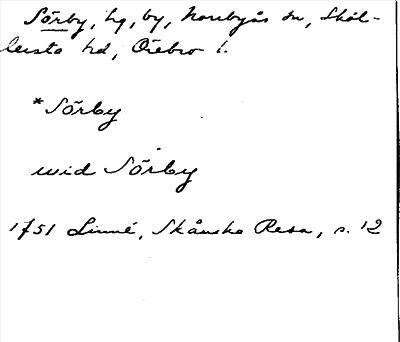 Sörby, hg, by, Norrbyås sn, Sköl-
lersta hd, Örebro l.
*Sörby
wid Sörby
1751 Linné, Skånska Resa, s. 12